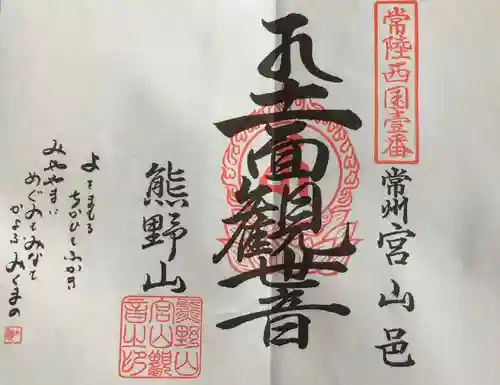 常陸西国壹番
常州宮山邑
十一面觀世音
熊野山
よをまもる
ちかひもふかき
みややまに
めぐみもみなと
かよふみくまの
熊野山
宮山觀
音山印